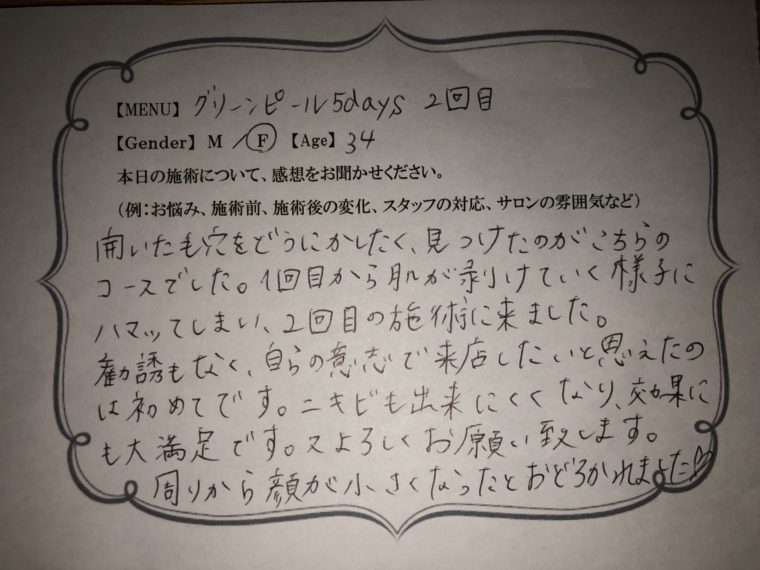 【MENU】 グリーンピール5days 2回目
【Gender】 M / F 【Age】 34
本日の施術について、感想をお聞かせください。
（例：お悩み、施術前、施術後の変化、スタッフの対応、サロンの雰囲気など）
開いたも穴をどうにかしたく、見つけたのがこちらの
コースでした。1回目から肌が剥けていく様子に
ハマッてしまい、2回目の施術に来ました。
勧誘もなく、自らの意志で来店したいと思えたの
は初めてです。ニキビも出来にくくなり、効果に
も大満足です。又よろしくお願い致します。
周りから顔が小さくなったとおどろかれました!!